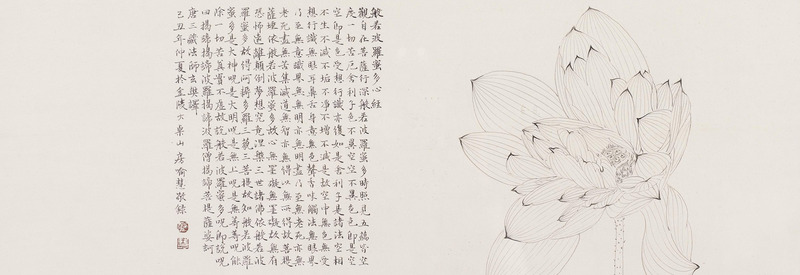 般若波羅蜜多心經
觀自在菩薩行深般若波羅蜜多時照見五蘊皆空
度一切苦厄舍利子色不異空空不異色色即是空
空即是色受想行識亦復如是舍利子是諸法空相
不生不滅不垢不淨不增不減是故空中無色無受
想行識無眼耳鼻舌身意無色聲香味觸法無眼界
乃至無意識界無無明亦無無明盡乃至無老死亦無
老死盡無苦集滅道無智亦無得以無所得故菩提
薩埵依般若波羅蜜多故心無罣礙無罣礙故無有
恐怖遠離顛倒夢想究竟涅槃三世諸佛依般若波
羅蜜多故得阿耨多羅三藐三菩提故知般若波羅
蜜多是大神咒是大明咒是無上咒是無等等咒能
除一切苦真實不虛故說般若波羅蜜多咒即說咒
曰揭諦揭諦波羅揭諦波羅僧揭諦菩提薩婆訶
唐三藏法師玄奘譯
己丑年仲夏於金陵山房喻慧敬錄